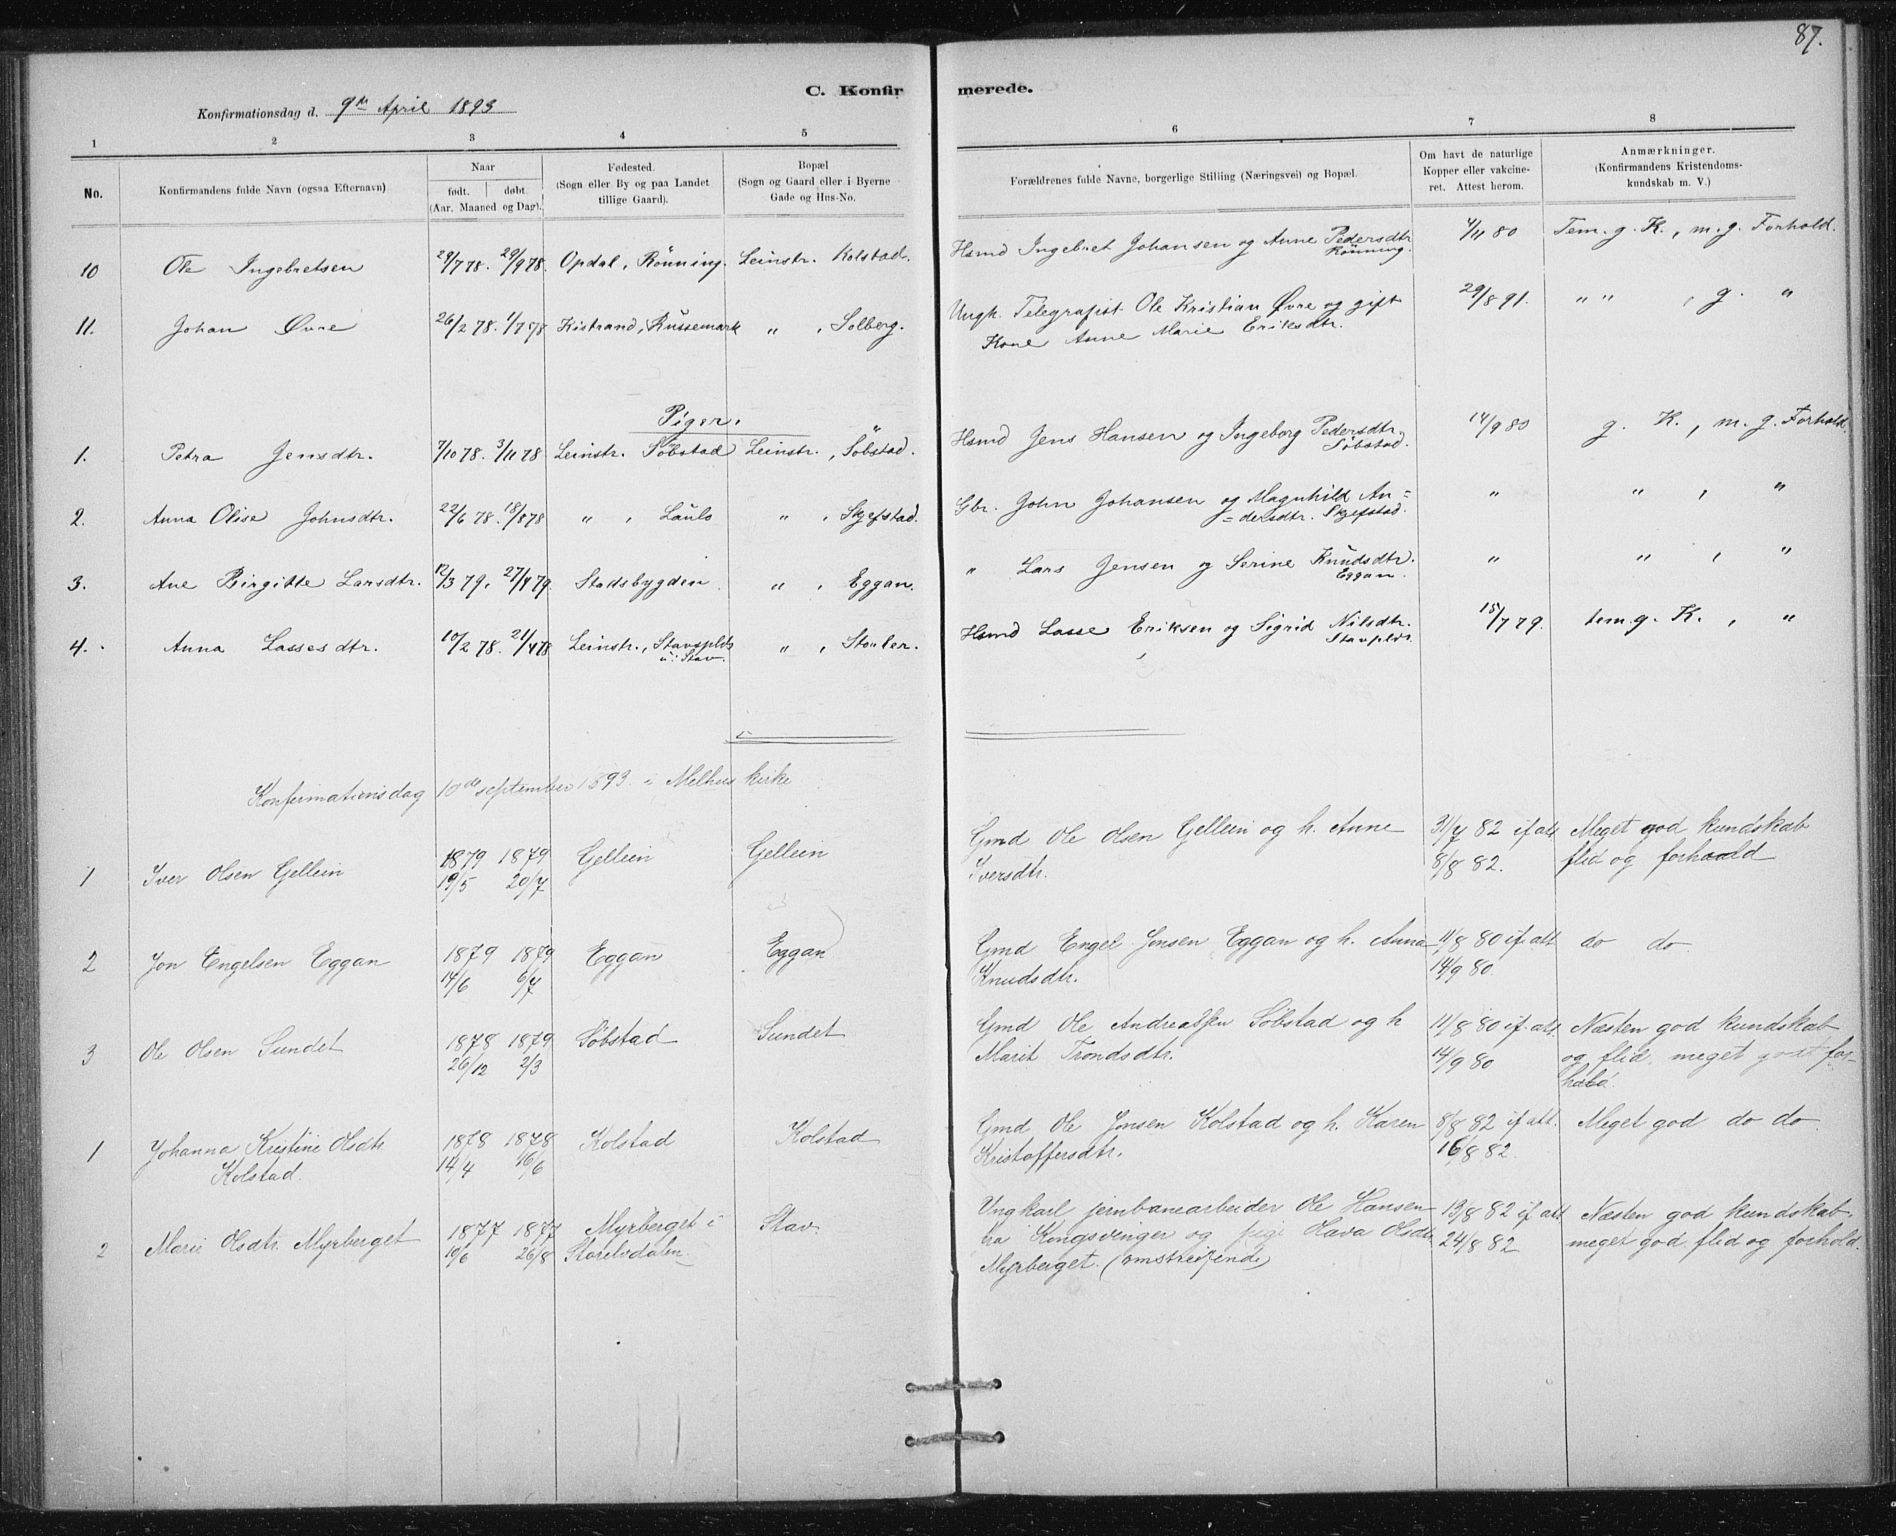 87.
C. Konfirmerede.
Konfirmationsdag d. 9de April 1893
1 2 3 4 5 6 7 8
No. Konfirmandens fulde Navn (ogsaa Efternavn) Naar født. døbt. (Aar. Maaned og Dag). Fødested. (Sogn eller By og paa Landet tillige Gaard). Bopæl (Sogn og Gaard eller i Byerne Gade og Hus-No. Forældrenes fulde Navne, borgerlige Stilling (Næringsvei) og Bopæl. Om havt de naturlige Kopper eller vakcineret. Attest herom. Anmærkninger. (Konfirmandens Kristendomskundskab m. V.)
10 Ole Ingebretsen 29/7 78. 29/9 78. Opdal, Rönning. Leinstr. Kolstad. Hsmd Ingebret Johansen og Anne Pedersdtr Rönning. 4/11 80 Tem. g. K., m. g. Forhold.
11. Johan Øvre 26/2 78. 1/7 78 Kistrand, Russemark " , Solberg. Ungk. Telegrafist Ole Kristian Øvre og gift 29/8 91. " " , g. "
Kone Anne Marie Eriksdtr.
Piger.
1. Petra Jensdtr. 7/10 78. 3/11 78 Leinstr. Söbstad Leinstr., Söbstad. Hsmd Jens Hansen og Ingeborg Pedersdtr. Söbstad. 14/9 80 g. K., m. g. Forhold.
2. Anna Olise Johnsdtr. 22/6 78. 18/8 78 " , Laulo " , Skjefstad. Gbr. John Johansen og Magnhild An= " " , "
=dersdtr. Skjefstad.
3. Ane Birgitte Larsdtr. 12/3 79. 27/4 79. Stadsbygden " , Eggan. " Lars Jensen og Serine Knudsdtr. Eggan. " " , "
4. Anna Lassesdtr. 10/2 78. 21/4 78 Leinstr., Stavsplds u. Stav " , Stouler. Hsmd Lasse Eriksen og Sigrid Nilsdtr. Stavplds. 15/7 79. tem. g. K., "
Konfirmationsdag 10de september 1893 i Melhus kirke
1 Iver Olsen Gellein 1879 19/5 1879 20/7 Gellein Gellein Gmd Ole Olsen Gellein og h. Anne 31/7 82 if att. Meget god kundskab
Iversdtr. 8/8 82. flid og forhold
2 Jon Engelsen Eggan 1879 14/6 1879 6/7 Eggan Eggan Gmd Engel Jonsen Eggan og h. Anna 11/8 80 if att do do
Knudsdtr. 14/9 80
3 Ole Olsen Sundet 1878 26/12 1879 2/3 Söbstad Sundet Gmd Ole Andreassen Söbstad og h 11/8 80 if. att. Næsten god kundskab
Marit Trondsdtr. 14/9 80 og flid, meget godt for-
hold.
1 Johanna Kristine Olsdtr Kolstad. 1878 14/4 1878 16/6 Kolstad Kolstad Gmd Ole Jonsen Kolstad og h. Karen 8/8 82 if att. Meget god do do
Kristoffersdtr. 16/8 82.
2 Marie Olsdtr. Myrberget 1877 10/6 1877 26/8 Myrberget i Storelvdalen Stav Ungkarl jernbanearbeider Ole Hansen 13/8 82 if att Næsten god kundskab,
fra Kongsvinger og pige Olava Olsdtr 24/8 82 meget god flid og forhold.
Myrberget. (omstreifende)